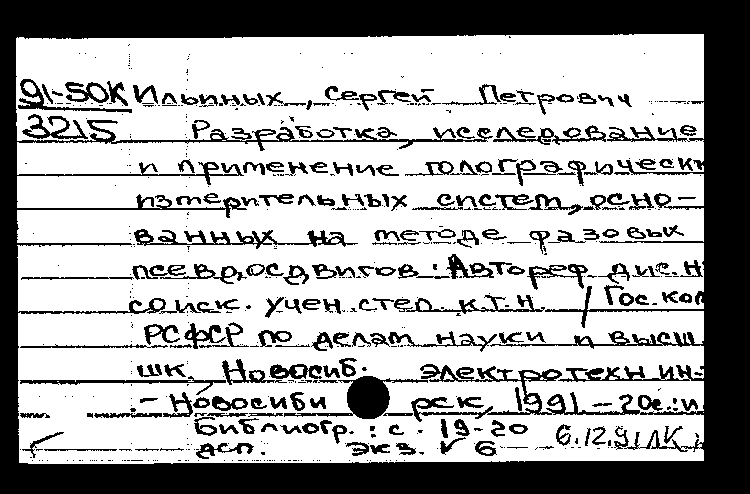 91-50К Ильиных, Сергей Петрович
3215 Разработка, исследование
и применение голографическ
измерительных систем, осно-
ванных на методе фазовых
псевдосдвигов: Автореф дис. н
соиск. учен. степ. к.т.н. / Гос. ком
РСФСР по делам науки и высш.
шк. Новосиб. электротехн ин-
.- Новосиби рск, 1991. - 20с.: и
Библиогр.: с. 19-20 6.12.91 ЛК
дсп. экз. 6